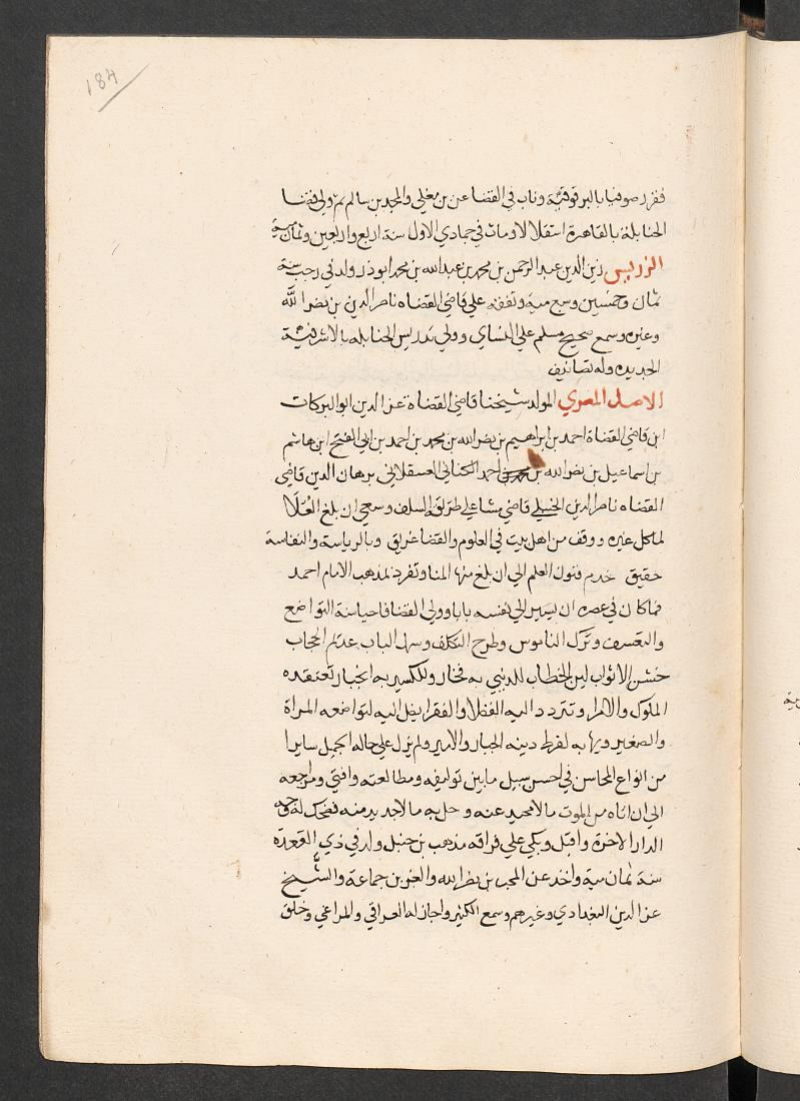 184
فقرر صوفيا بالبرقوقية وناب في القضا عن بن مغلي والمجد بن سالم ثم ولي قضا
الحنابلة بالقاهرة استقلالا ومات في جمادي الاول سنة اربع واربعين وثمان مية
زين الدين عبد الرحمن بن محمد بن عبد الله بن محمد ابوذر ولد في رجب سنة
ثمان وخمسين وسبع مية وتفقه علي قاضي القضاه ناصر الدين بن نصر الله
وغيره وسمع صحيح مسلم علي البساي وولي تدريس الحنابله بالاشرفية
الجديده وله تصانيف
الاصل المصري المولد شيخنا قاضي القضاة عز الدين ابو البركات
ابن قاضي القضاة احمد بن ابراهيم بن نصر الله بن محمد بن احمد بن ابي الفتح ابن هاشم
بن اسماعيل بن نصر الله بن احمد الكناني العسقلاني برهان الدين قاضي
القضاه ناصر الدين الحنبلي قاضي مشا علي طريقة السلف وسعي ان بلغ العلا
لما كل غيره ووقف من اهل بيت في العلوم والقضا عريق وبالرياسة والنفاسة
حقيق خدم فنون العلم الي ان بلغ منها المنا وتفرد بمذهب الامام احمد
فما كان في عصره ان يسير الي نفسه بابا وولي القضا فاحيا سنة التواضع
والتعسف وترك الناموس وطرح التكلف وسهل الباب عديم الحجاب
خشن الاثواب لين الخطاب للدنيي به فخار وللكسير به انجبار تعتقده
الملوك والامرا وتتردد اليه الفضلا والفقرا يصل اليه لتواضعه المراة
والصغير ويهابه لفرط دينه الجبار والامير ولم يزل علي حاله الجميل سايرا
من انواع المحاسن في احسن سبيل ما بين تواليفه ومطالعته وافتي ومراجعه
الي ان اتاه من الموت ما لا محيد عنه وحل به ما لا بد منه فضحك له وجه
الدار الاخرة واقبل وبكي علي فراقه مذهب بن حنبل ولد في ذي القعدة
سنة ثمان مية واخذ عن المحب بن نصر الله والعز بن جماعة والشيخ
عز الدين البغدادي وغيرهم وسمع الكثير واجاز له العراقي والمراغي وخلق